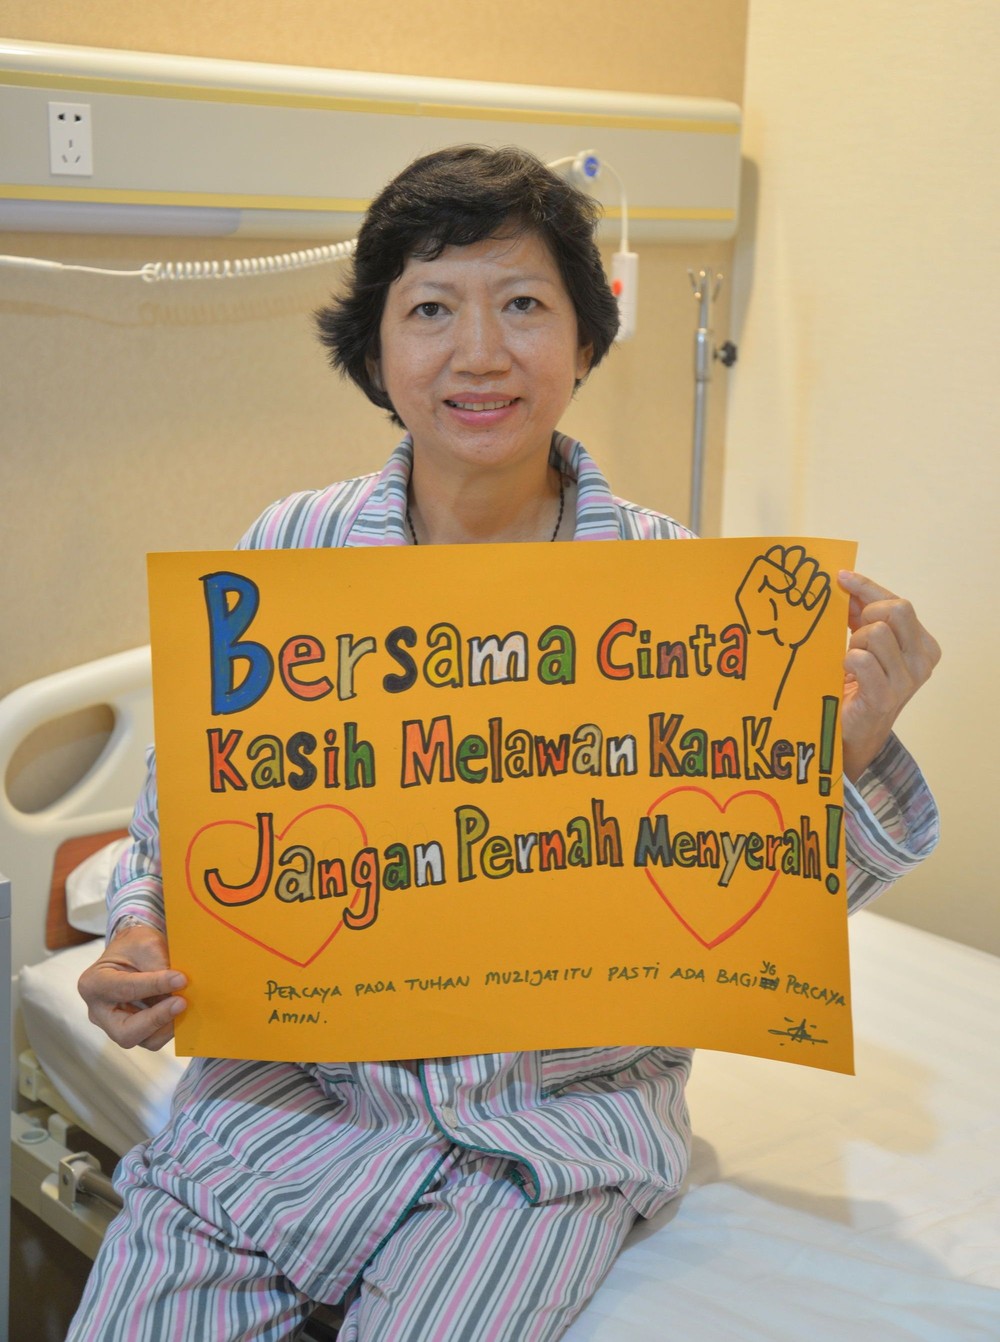 Bersama Cinta
Kasih Melawan Kanker!
Jangan Pernah Menyerah!
PERCAYA PADA TUHAN MUZIJAT ITU PASTI ADA BAGI YG PERCAYA
AMIN.